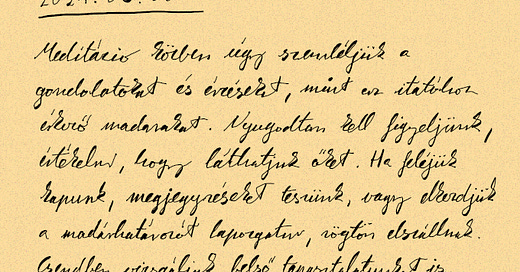 Meditáció közben úgy szemléljük a
gondolatokat és érzéseket, mint az itatóhoz
érkező madarakat. Nyugodtan kell figyeljünk,
értékelni, hogy láthatjuk őket. Ha feléjük
kapunk, megjegyzéseket teszünk, vagy elkezdjük
a madárhatározót lapozgatni, rögtön elszállnak.
Csendben vizsgáljuk belső tapasztalatunkat is